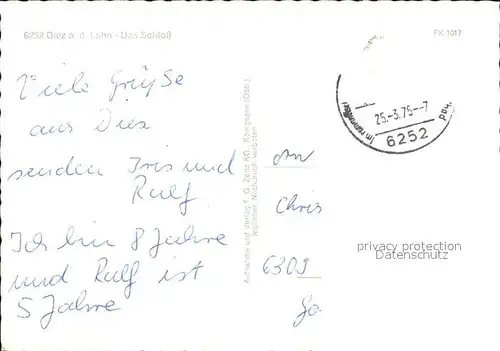 6252 Diez a. d. Lahn - Das Schloß
FK 1017
Viele Grüße
aus Diez
senden Iris und
Ralf.
Ich bin 8 Jahre
und Ralf ist
5 Jahre
Aufnahme und Verlag F. G. Zeitz KG., Königssee (Obb.)
Jeglicher Nachdruck verboten
25.-3.75--7
6252
An
Chris
6309
privacy protection
Datenschutz